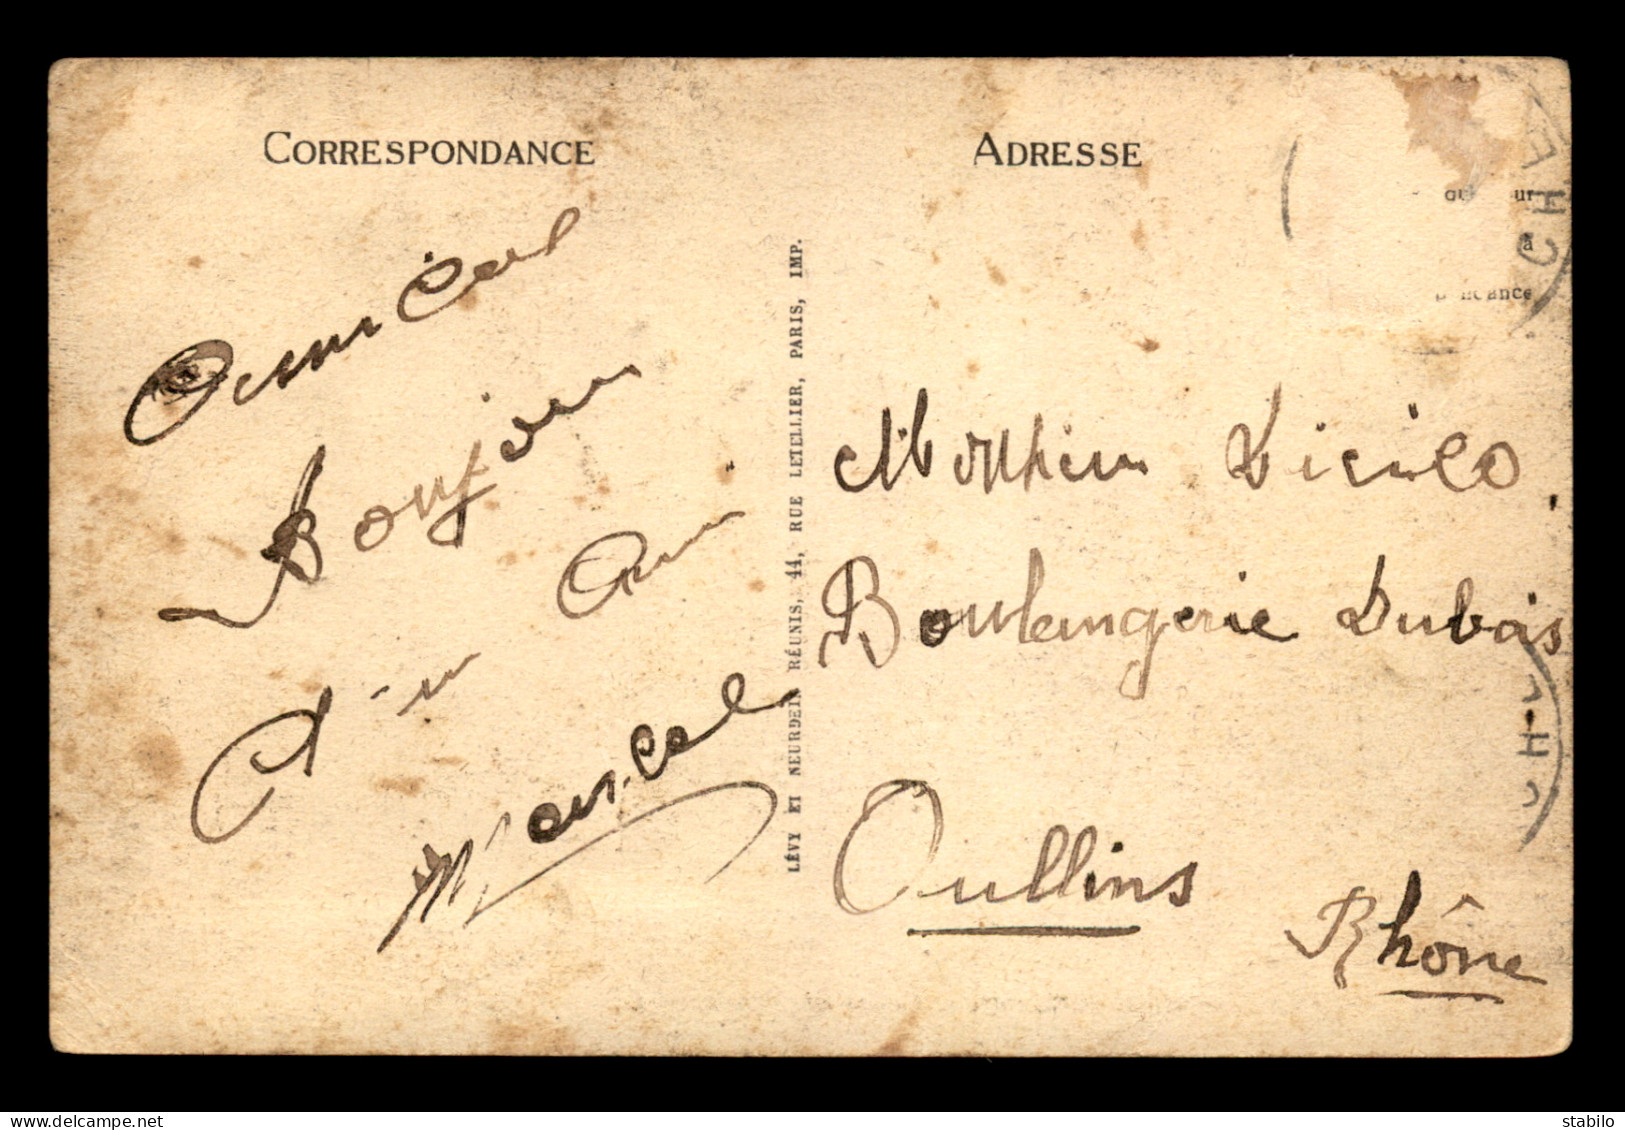 CORRESPONDANCE
Amical
Bonjour
d'un Ami
Marcel
LÉVY ET NEURDEIN RÉUNIS, 44, RUE LETELLIER, PARIS, IMP.
ADRESSE
à
Monsieur
Boulangerie Dubois
Oullins
Rhône
stabilo
www.delcampe.net